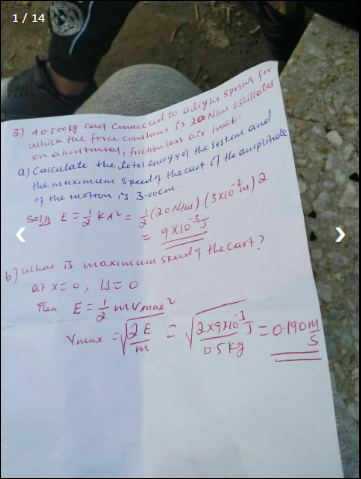 1 / 14
3) A 0.500kg cart connected to a light spring for
which the force constant is 20N/m oscillates
on a horizontal, frictionless air track.
a) Calculate the total energy of the system and
the maximum speed of the cart if the amplitude
of the motion is 3.00cm.
Soln E = 1/2 KA² = 1/2 (20N/m) (3X10⁻² m) 2
= 9X10⁻³ J
b) What is maximum speed of the cart?
at x=0, U=0
Then E = 1/2 m Vmax²
Vmax = √2E/m = √2x9x10⁻³ J/0.5kg = 0.190 m/s